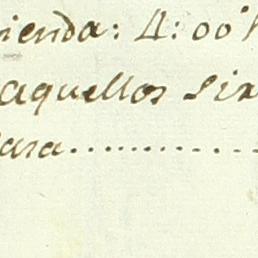 ienda: 4:00
aquellos sir
ara..............